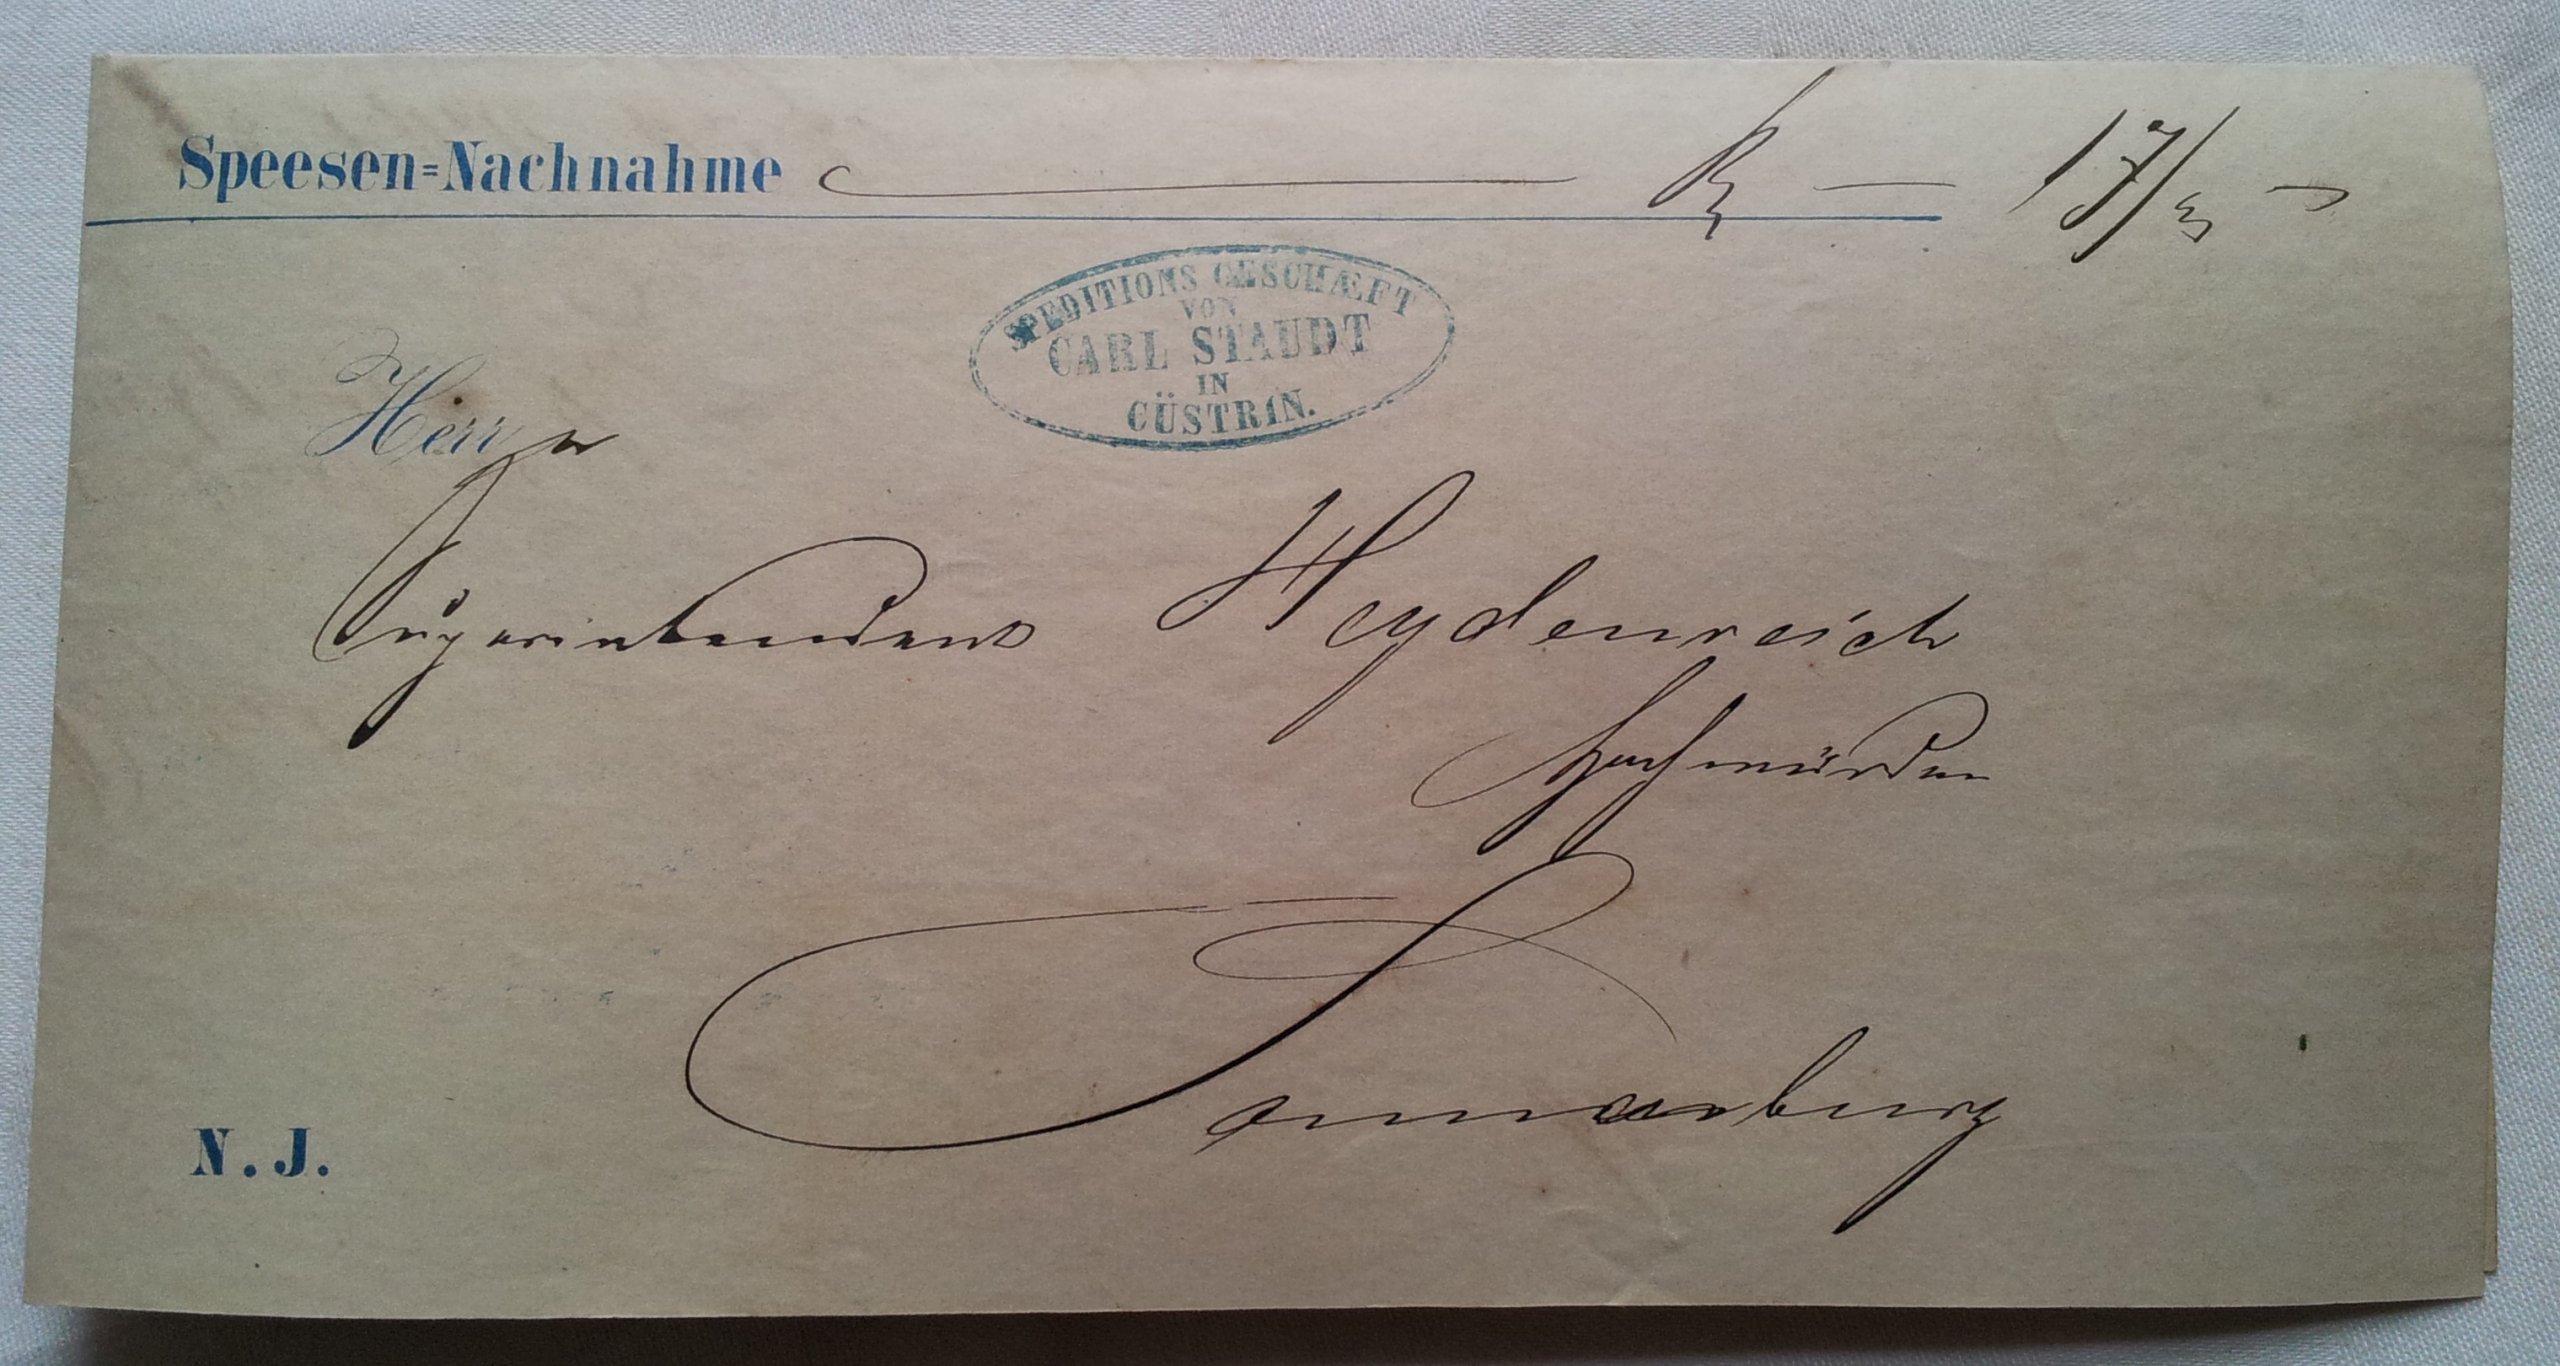 Speesen=Nachnahme — — 17/
SPEDITIONS GESCHÆFT
VON
CARL STAUDT
IN
CÜSTRIN.
Herrn
Superintendent Heydenreich
Hochwürden
Sonnenburg
N. J.